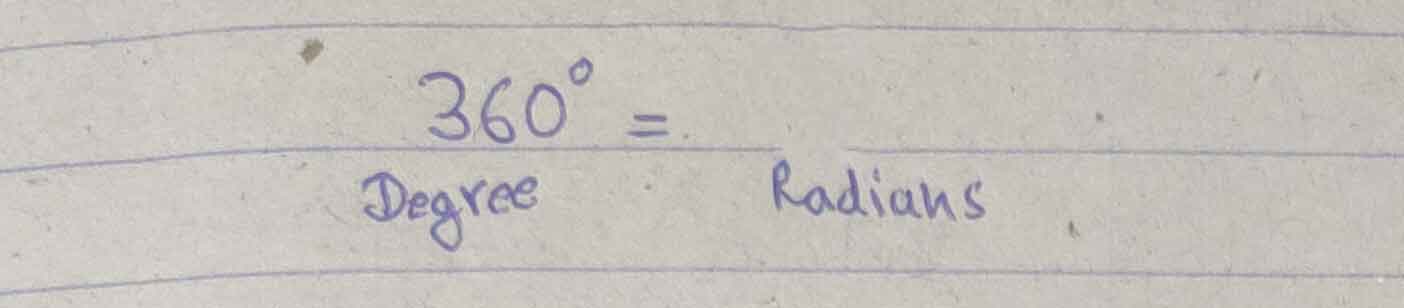 360° =
Degree Radians